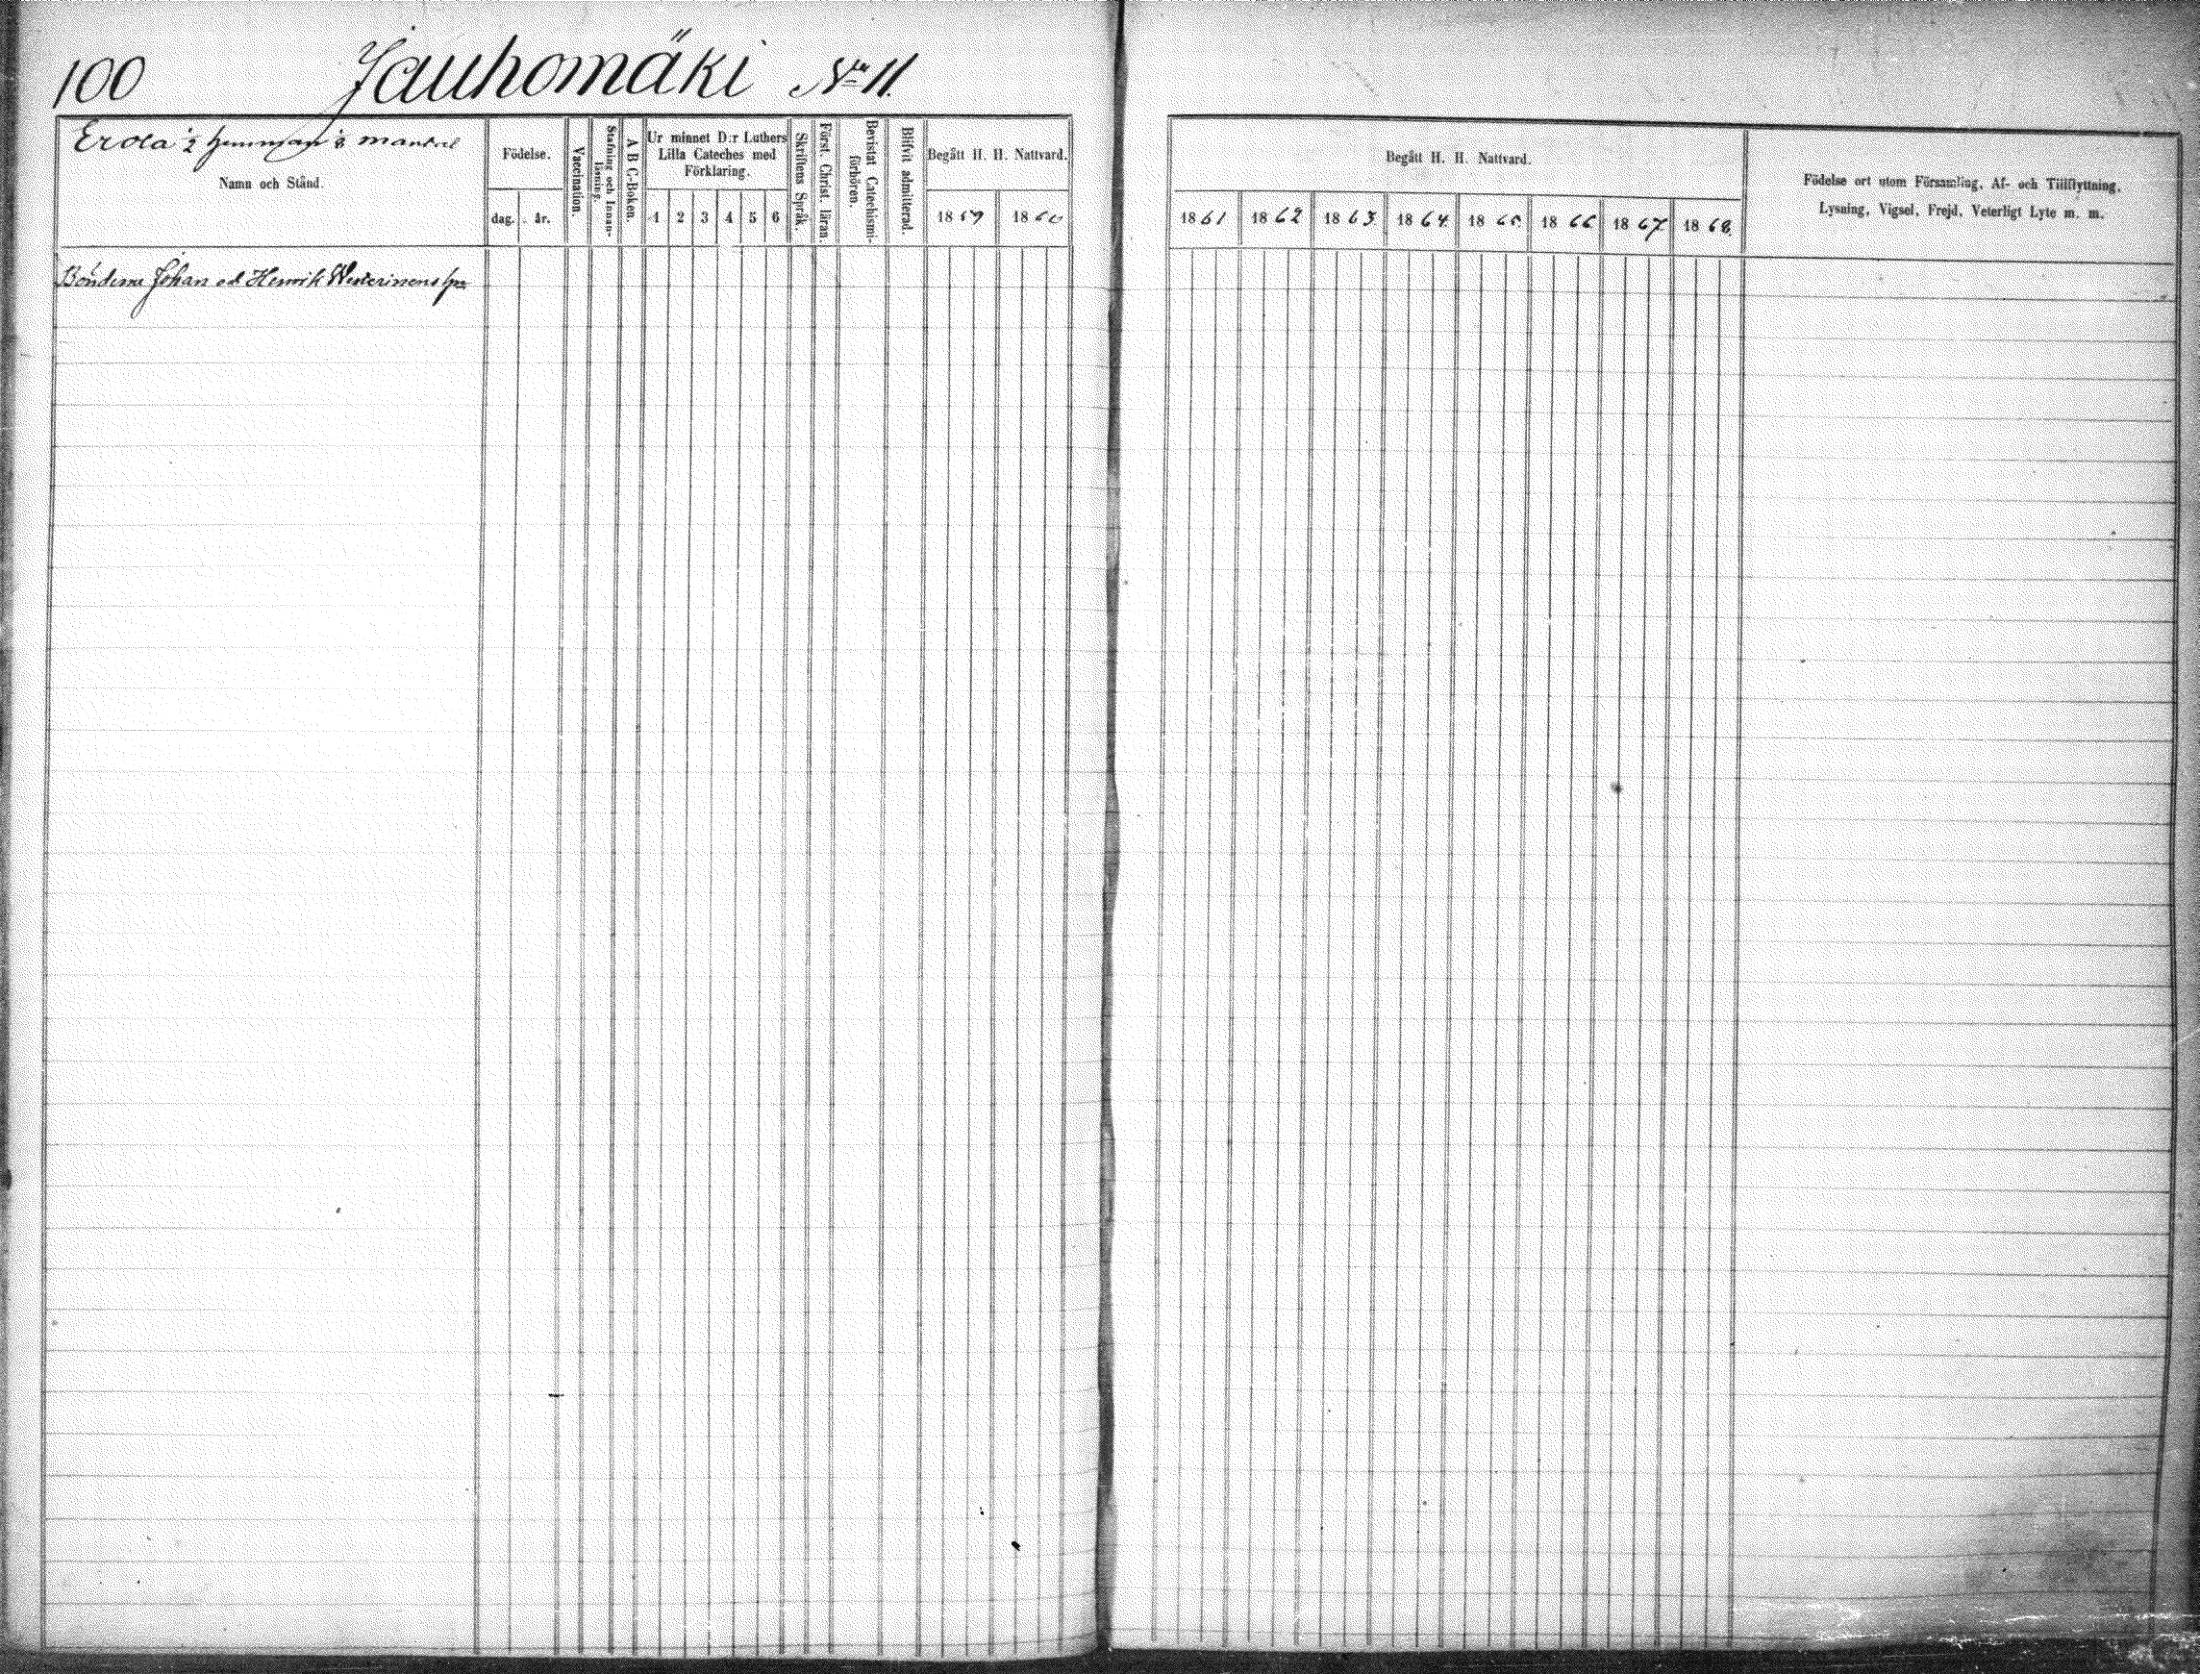 100 Jauhomäki No 11.
Erola ½ hemman ⅛ mantal
Namn och Stånd.
Födelse.
dag. år.
Vaccination.
Stafning och Innan-
läsning.
A B C-Boken.
Ur minnet D:r Luthers
Lilla Cateches med
Förklaring.
1 2 3 4 5 6
Skriftens Språk.
Först. Christ. läran.
Bevistat Catechismi-
förhören.
Blifvit admitterad.
Begått H. H. Nattvard.
1859 1860
Begått H. H. Nattvard.
1861 1862 1863. 1864. 1865. 1866 1867 1868.
Födelse ort utom Församling, Af- och Tillflyttning,
Lysning, Vigsel, Frejd, Veterligt Lyte m. m.
Bönderne Johan och Henrik Westerinens